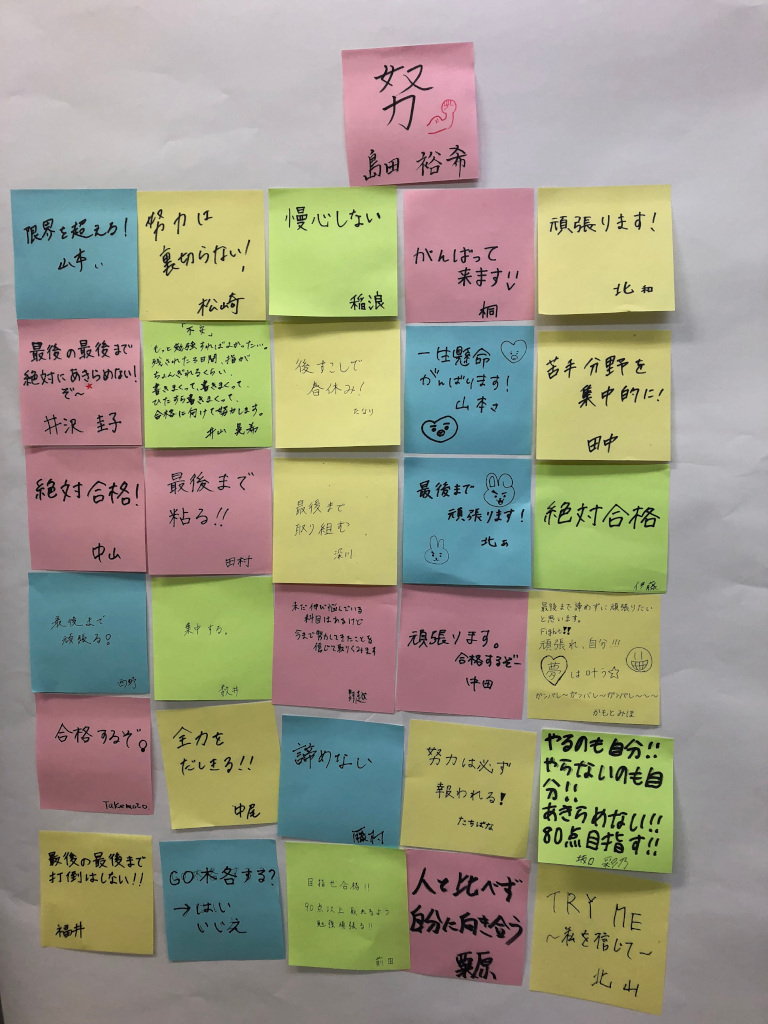 努力
島田 裕希
限界を超えろ!
山本
努力は
裏切らない!
松崎
慢心しない
稲浪
がんばって
来ます!!
桐
頑張ります!
北 和
最後の最後まで
絶対にあきらめない!
ぞ〜
井沢 圭子
「不安」
もっと勉強すればよかった…。
残された5日間、指が
ちょんぎれるくらい
書きまくって、書きまくって、
ひたすら書きまくって、
合格に向けて努力します。
後すこしで
春休み!
たなり
一生懸命
がんばります!
山本
苦手分野を
集中的に!
田中
絶対合格!
中山
最後まで
粘る!!
田村
最後まで
取り組む.
深川
最後まで
頑張ります!
北
絶対合格
伊藤
最後まで
頑張る?
西野
集中する。
まだ伸び悩んでいる
科目はあるけど
今まで努力してきたことを
信じて取りくみます
頑張ります。
合格するぞー
中田
最後まで諦めずに頑張りたい
と思います。
Fight!!
頑張れ、自分!!!
夢は叶う☆
ガンバレ〜ガンバレ〜ガンバレ〜し〜
かもとみほ
合格するぞ!
Takemoto
全力を
だしきる!!
中尾
諦めない
西村
努力は必ず
報われる!
たちばな
やるのも自分!!
やらないのも自
分!!
あきらめない!!
80点目指す!!
坂口
最後の最後まで
打倒はしない!!
福井
GO木各する?
→はい
いいえ
目指せ合格!!
90点以上取れるよう
勉強頑張る!!
前田
人と比べず
自分に向き合う
栗原
TRY ME
〜私を信じて〜
北山